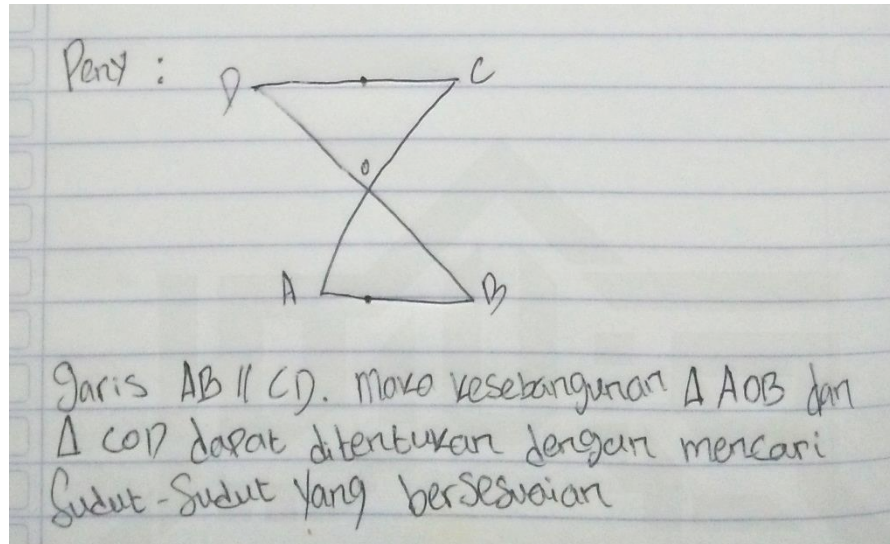 Peny :
D C
O
A B
garis AB // CD. Maka kesebangunan Δ AOB dan
Δ COD dapat ditentukan dengan mencari
Sudut-Sudut Yang bersesuaian